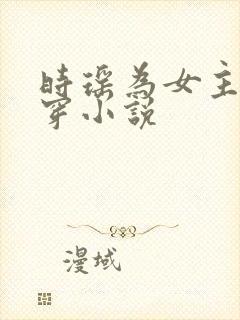 時瑶為女主
穿小說
漫域